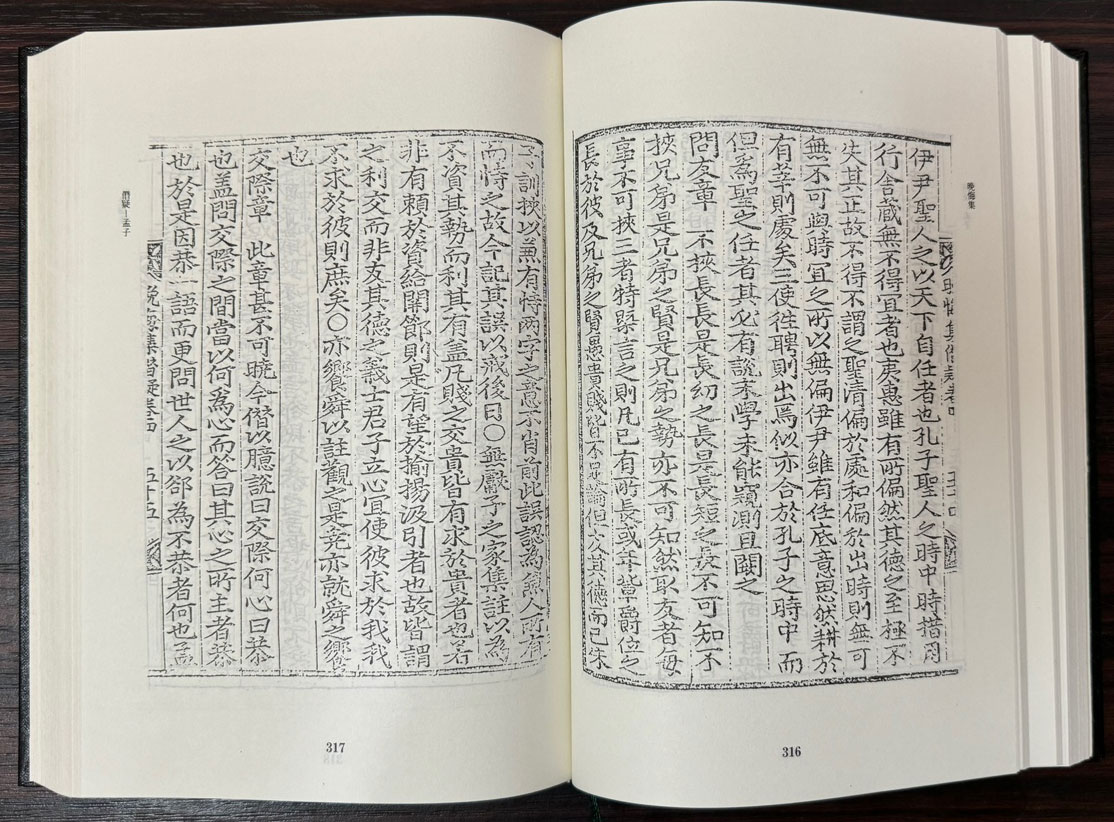 晚悔集
伊尹聖人之以天下自任者也孔子聖人之時中時措
行舍藏無不得宜者也夷惠雖有所偏然其德之至極不
失其正故不得不謂之聖淸偏於處和偏於出時則無可
無不可與時宜之所以無偏伊尹雖有任底意思然耕於
有莘則處矣三使徃聘則出焉似亦合於孔子之時中而
但爲聖之任者其必有說末學未能窺測且闕之
問友章 不挾長長是長幼之長是長短之長不可知不
挾兄弟是兄弟之賢是兄弟之勢亦不可知然取友者每
事不可挾三者特擧言之則凡已有所長或年輩爵位之
長於彼及兄弟之賢愚貴賤皆不足論但友其德而已朱
316
子訓挾以兼有恃兩字之意不肖前此誤認爲兼人所有
而恃之故今記其誤以戒後日○無獻子之家集註以爲
不資其勢而利其有盖凡賤之交貴皆有求於貴者也若
非有賴於資給關節則是有望於揄揚汲引者也故皆謂
之利交而非友其德之義士君子立心宜使彼求於我我
不求於彼則庶矣○亦饗舜以註觀之是堯亦就舜之饗
也
交際章 此章甚不可曉今僭以臆說曰交際何心曰恭
也盖問交際之間當以何爲心而答曰其心之所主者恭
也於是因恭一語而更問世人之以卻爲不恭者何也孟
晚悔集僭疑卷四 五十五
僭疑—孟子
317